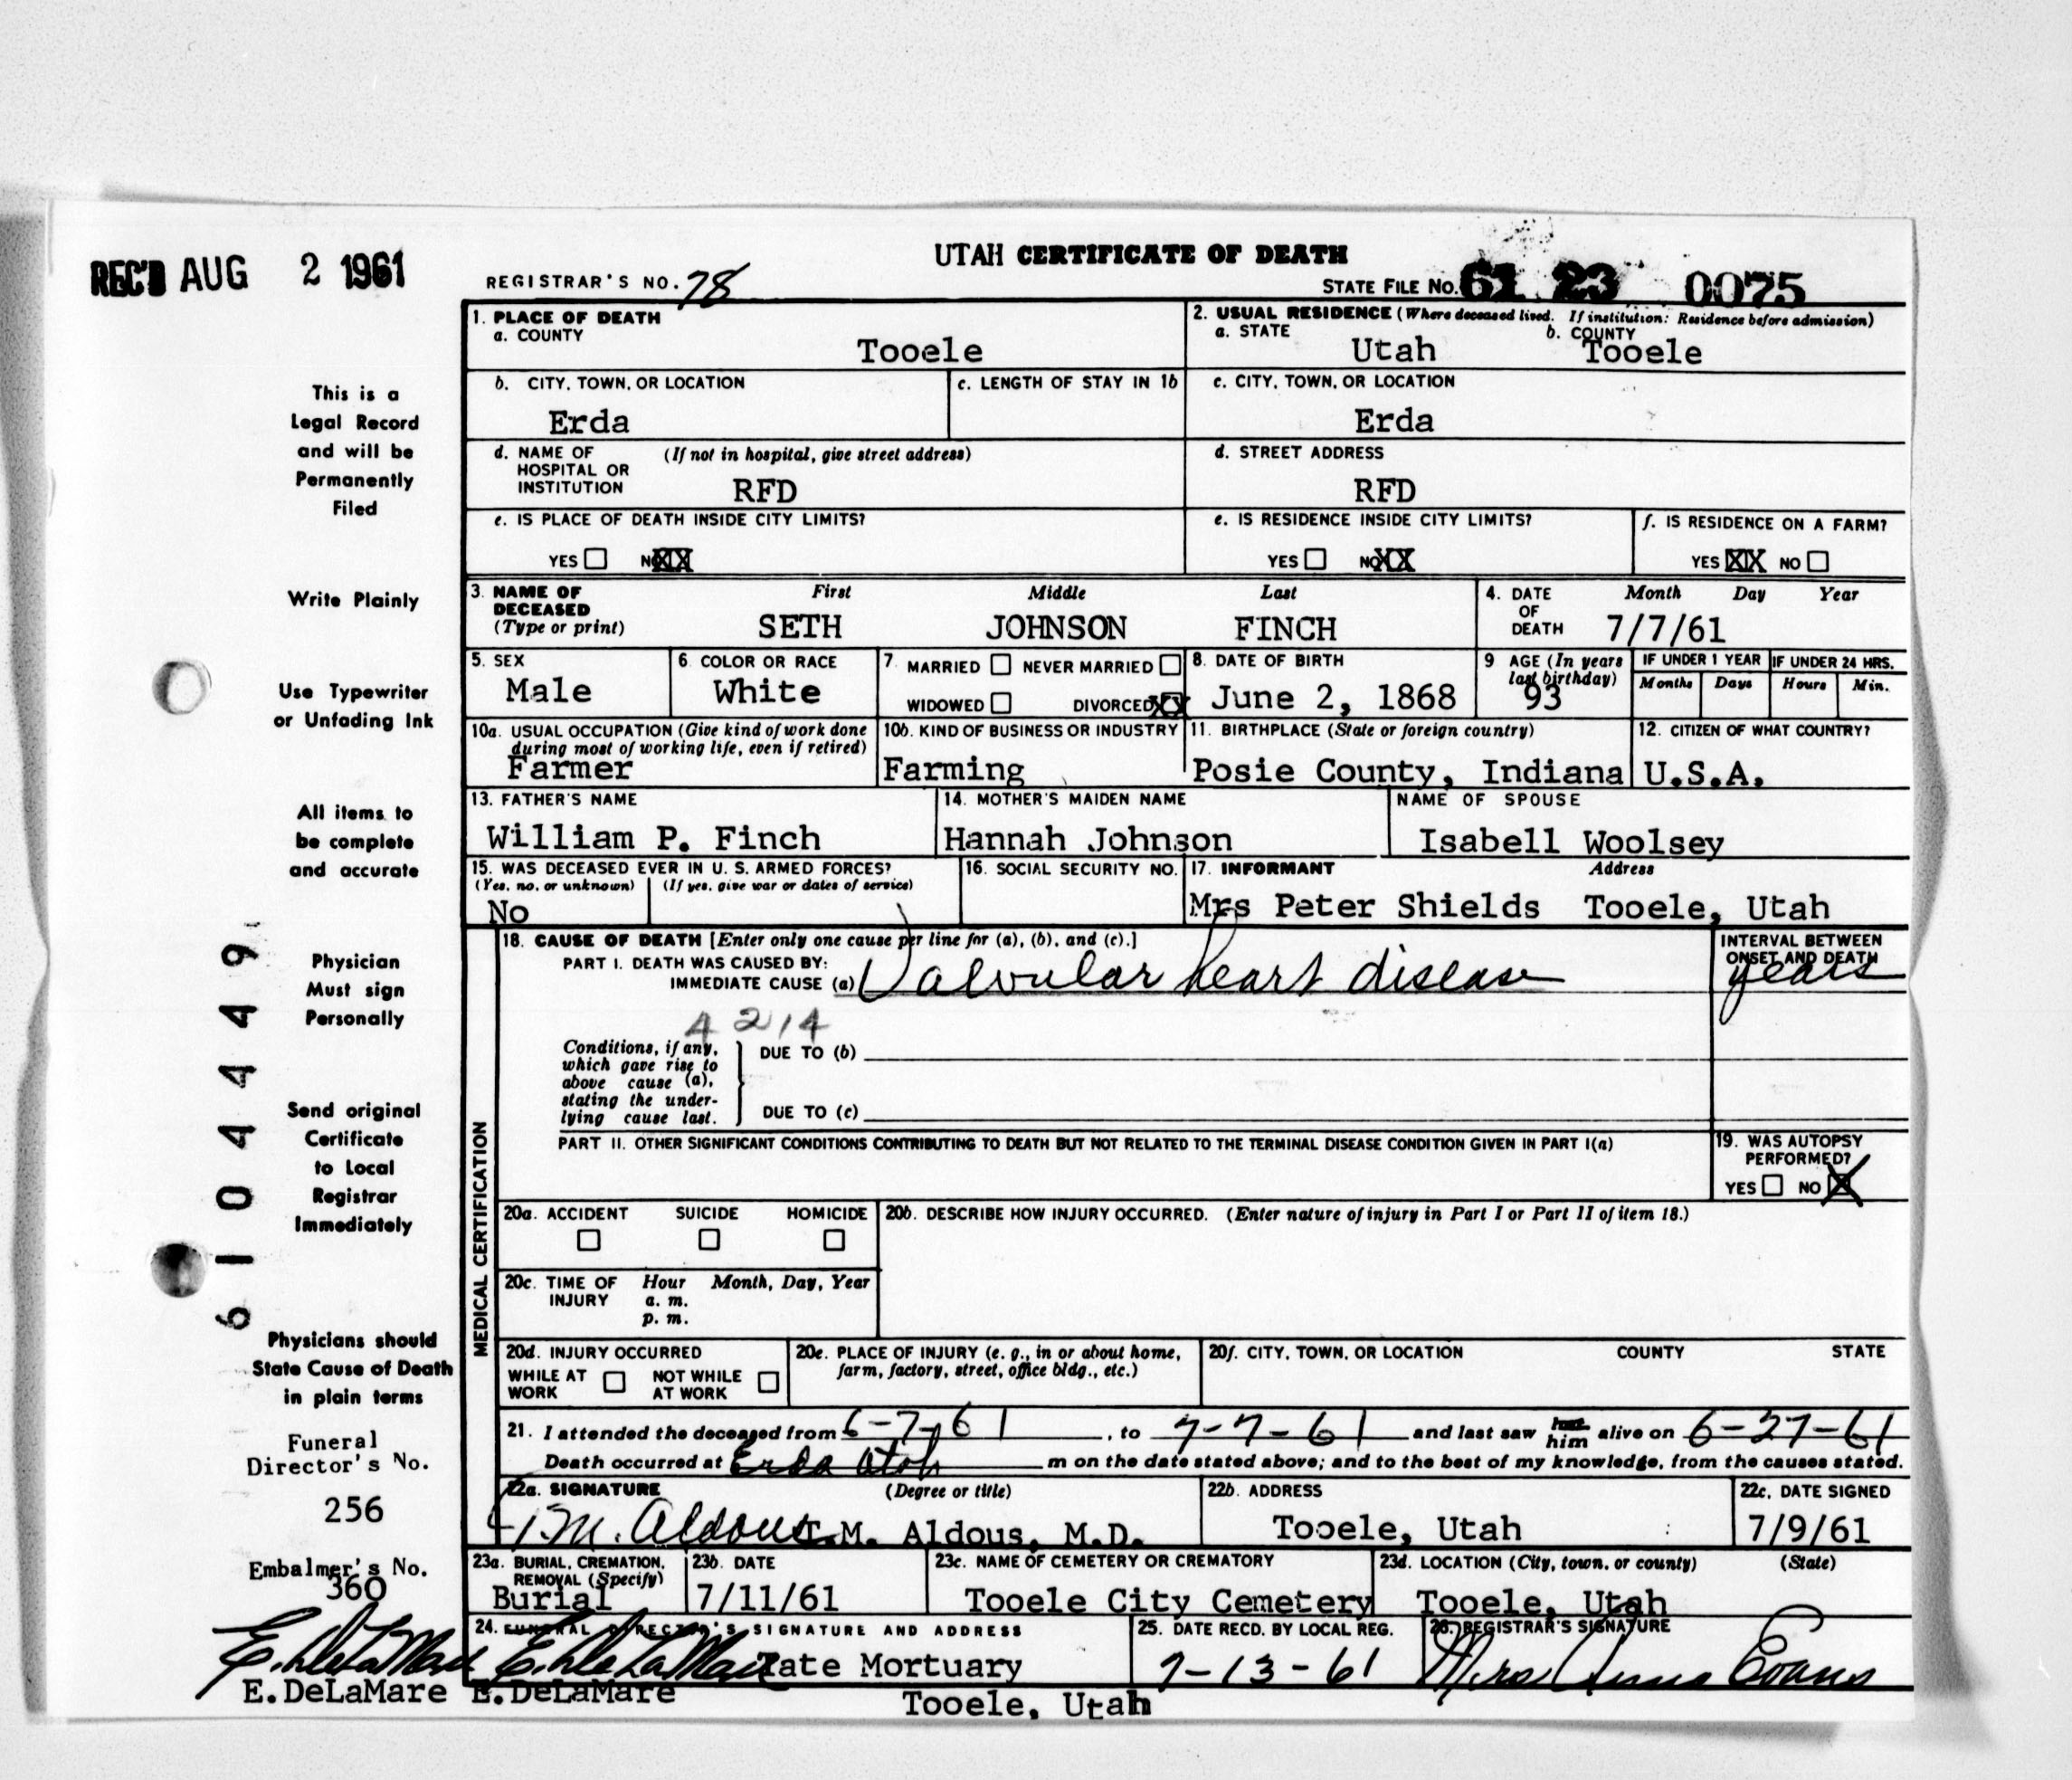 REC'D AUG 2 1961
UTAH CERTIFICATE OF DEATH
REGISTRAR'S NO. 78
STATE FILE No. 61 23 0075
This is a
Legal Record
and will be
Permanently
Filed
Write Plainly
Use Typewriter
or Unfading Ink
All items to
be complete
and accurate
Physician
Must sign
Personally
Send original
Certificate
to Local
Registrar
Immediately
Physicians should
State Cause of Death
in plain terms
Funeral
Director's No.
256
Embalmer's No.
360
E. DeLaMare
E.DeLaMare
610 4449
1. PLACE OF DEATH
a. COUNTY
Tooele
2. USUAL RESIDENCE (Where deceased lived. If institution: Residence before admission)
a. STATE
Utah
b. COUNTY
Tooele
b. CITY, TOWN, OR LOCATION
Erda
c. LENGTH OF STAY IN 1b
c. CITY, TOWN, OR LOCATION
Erda
d. NAME OF HOSPITAL OR INSTITUTION (If not in hospital, give street address)
RFD
d. STREET ADDRESS
RFD
e. IS PLACE OF DEATH INSIDE CITY LIMITS?
YES NO XX
e. IS RESIDENCE INSIDE CITY LIMITS?
YES NO XX
f. IS RESIDENCE ON A FARM?
YES XX NO
3. NAME OF DECEASED (Type or print)
First Middle Last
SETH JOHNSON FINCH
4. DATE OF DEATH
Month Day Year
7/7/61
5. SEX
Male
6. COLOR OR RACE
White
7. MARRIED NEVER MARRIED
WIDOWED DIVORCED XX
8. DATE OF BIRTH
June 2, 1868
9 AGE (In years last birthday)
93
IF UNDER 1 YEAR
Months Days
IF UNDER 24 HRS.
Hours Min.
10a. USUAL OCCUPATION (Give kind of work done during most of working life, even if retired)
Farmer
10b. KIND OF BUSINESS OR INDUSTRY
Farming
11. BIRTHPLACE (State or foreign country)
Posie County, Indiana
12. CITIZEN OF WHAT COUNTRY?
U.S.A.
13. FATHER'S NAME
William P. Finch
14. MOTHER'S MAIDEN NAME
Hannah Johnson
NAME OF SPOUSE
Isabell Woolsey
15. WAS DECEASED EVER IN U. S. ARMED FORCES?
(Yes, no, or unknown) (If yes, give war or dates of service)
No
16. SOCIAL SECURITY NO.
17. INFORMANT Address
Mrs Peter Shields Tooele, Utah
MEDICAL CERTIFICATION
18. CAUSE OF DEATH [Enter only one cause per line for (a), (b), and (c).]
PART I. DEATH WAS CAUSED BY:
IMMEDIATE CAUSE (a) Valvular heart disease
INTERVAL BETWEEN ONSET AND DEATH
years
4214
Conditions, if any, which gave rise to above cause (a), stating the underlying cause last.
DUE TO (b)
DUE TO (c)
PART II. OTHER SIGNIFICANT CONDITIONS CONTRIBUTING TO DEATH BUT NOT RELATED TO THE TERMINAL DISEASE CONDITION GIVEN IN PART I(a)
19. WAS AUTOPSY PERFORMED?
YES NO X
20a. ACCIDENT SUICIDE HOMICIDE
20b. DESCRIBE HOW INJURY OCCURRED. (Enter nature of injury in Part I or Part II of item 18.)
20c. TIME OF INJURY
Hour Month, Day, Year
a. m.
p. m.
20d. INJURY OCCURRED
WHILE AT WORK NOT WHILE AT WORK
20e. PLACE OF INJURY (e. g., in or about home, farm, factory, street, office bldg., etc.)
20f. CITY, TOWN, OR LOCATION COUNTY STATE
21. I attended the deceased from 6-7-61, to 7-7-61 and last saw him alive on 6-27-61
Death occurred at Erda Utah m on the date stated above; and to the best of my knowledge, from the causes stated.
22a. SIGNATURE (Degree or title)
T.M. Aldous T.M. Aldous, M.D.
22b. ADDRESS
Tooele, Utah
22c. DATE SIGNED
7/9/61
23a. BURIAL, CREMATION, REMOVAL (Specify)
Burial
23b. DATE
7/11/61
23c. NAME OF CEMETERY OR CREMATORY
Tooele City Cemetery
23d. LOCATION (City, town, or county) (State)
Tooele, Utah
24. FUNERAL DIRECTOR'S SIGNATURE AND ADDRESS
E. DeLaMare Tate Mortuary
E.DeLaMare
Tooele, Utah
25. DATE RECD. BY LOCAL REG.
7-13-61
26. REGISTRAR'S SIGNATURE
Mrs Evans